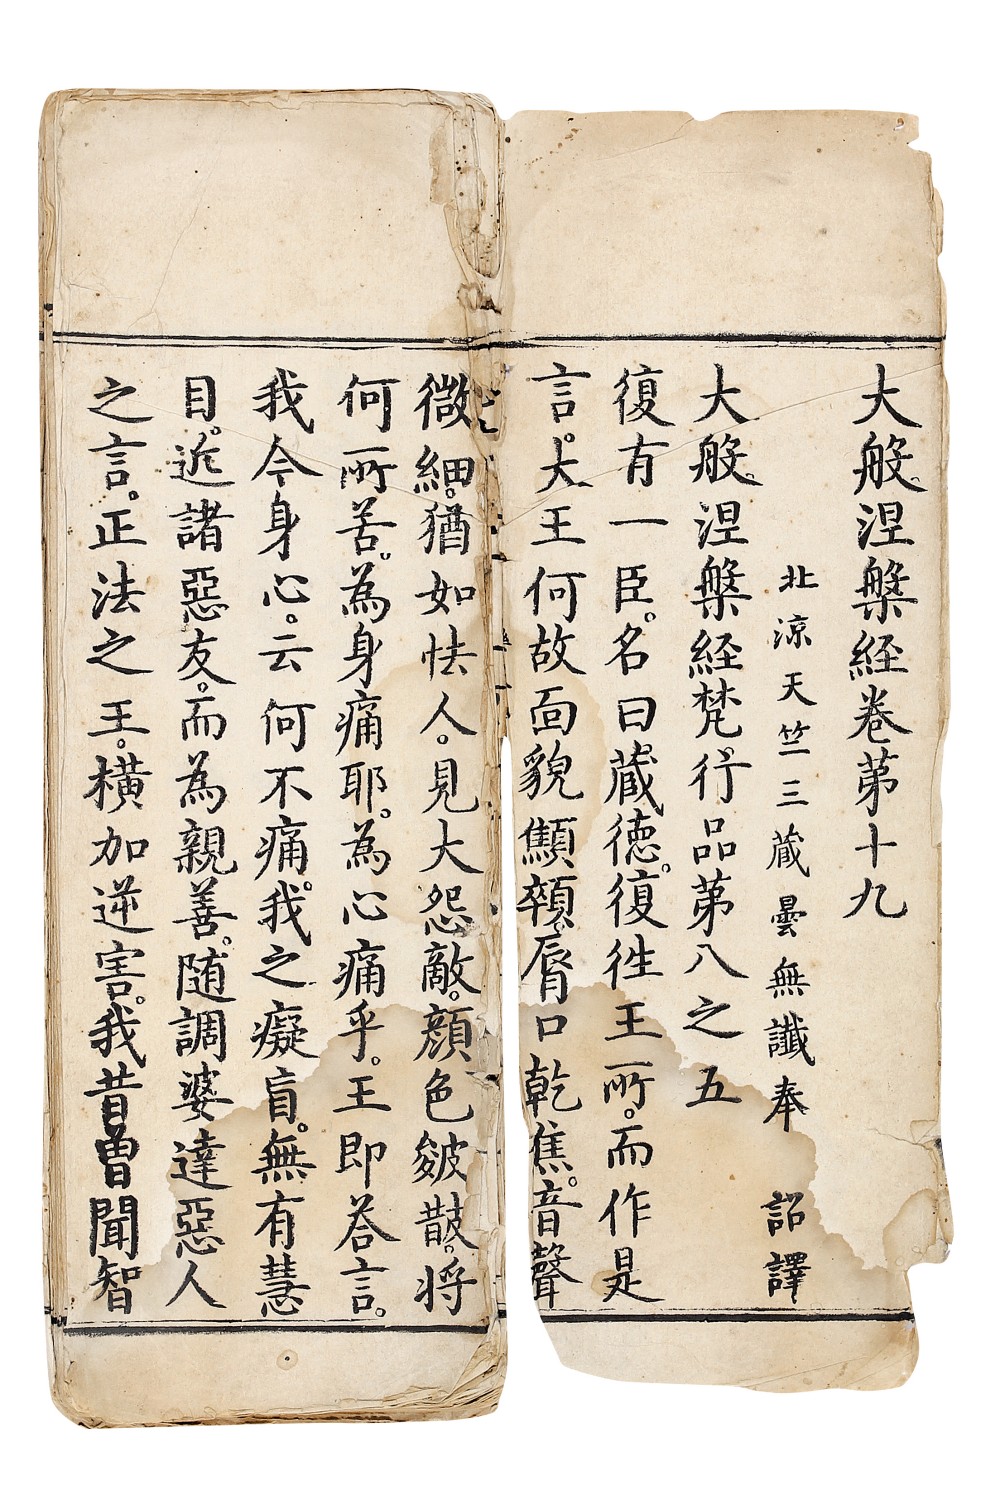 大般涅槃経巻第十九
北凉天竺三蔵曇無讖奉 詔譯
大般涅槃経梵行品第八之五
復有一臣。名曰蔵徳。復往王所。而作是
言。大王何故面貌顦顇。脣口乾焦。音聲
微細。猶如怯人。見大怨敵。顔色皴皵。将
何所苦。為身痛耶。為心痛乎。王即荅言。
我今身心。云何不痛。我之癡盲。無有慧
目。近諸惡友。而為親善。随調婆達惡人
之言。正法之王。横加逆害。我昔曽聞智